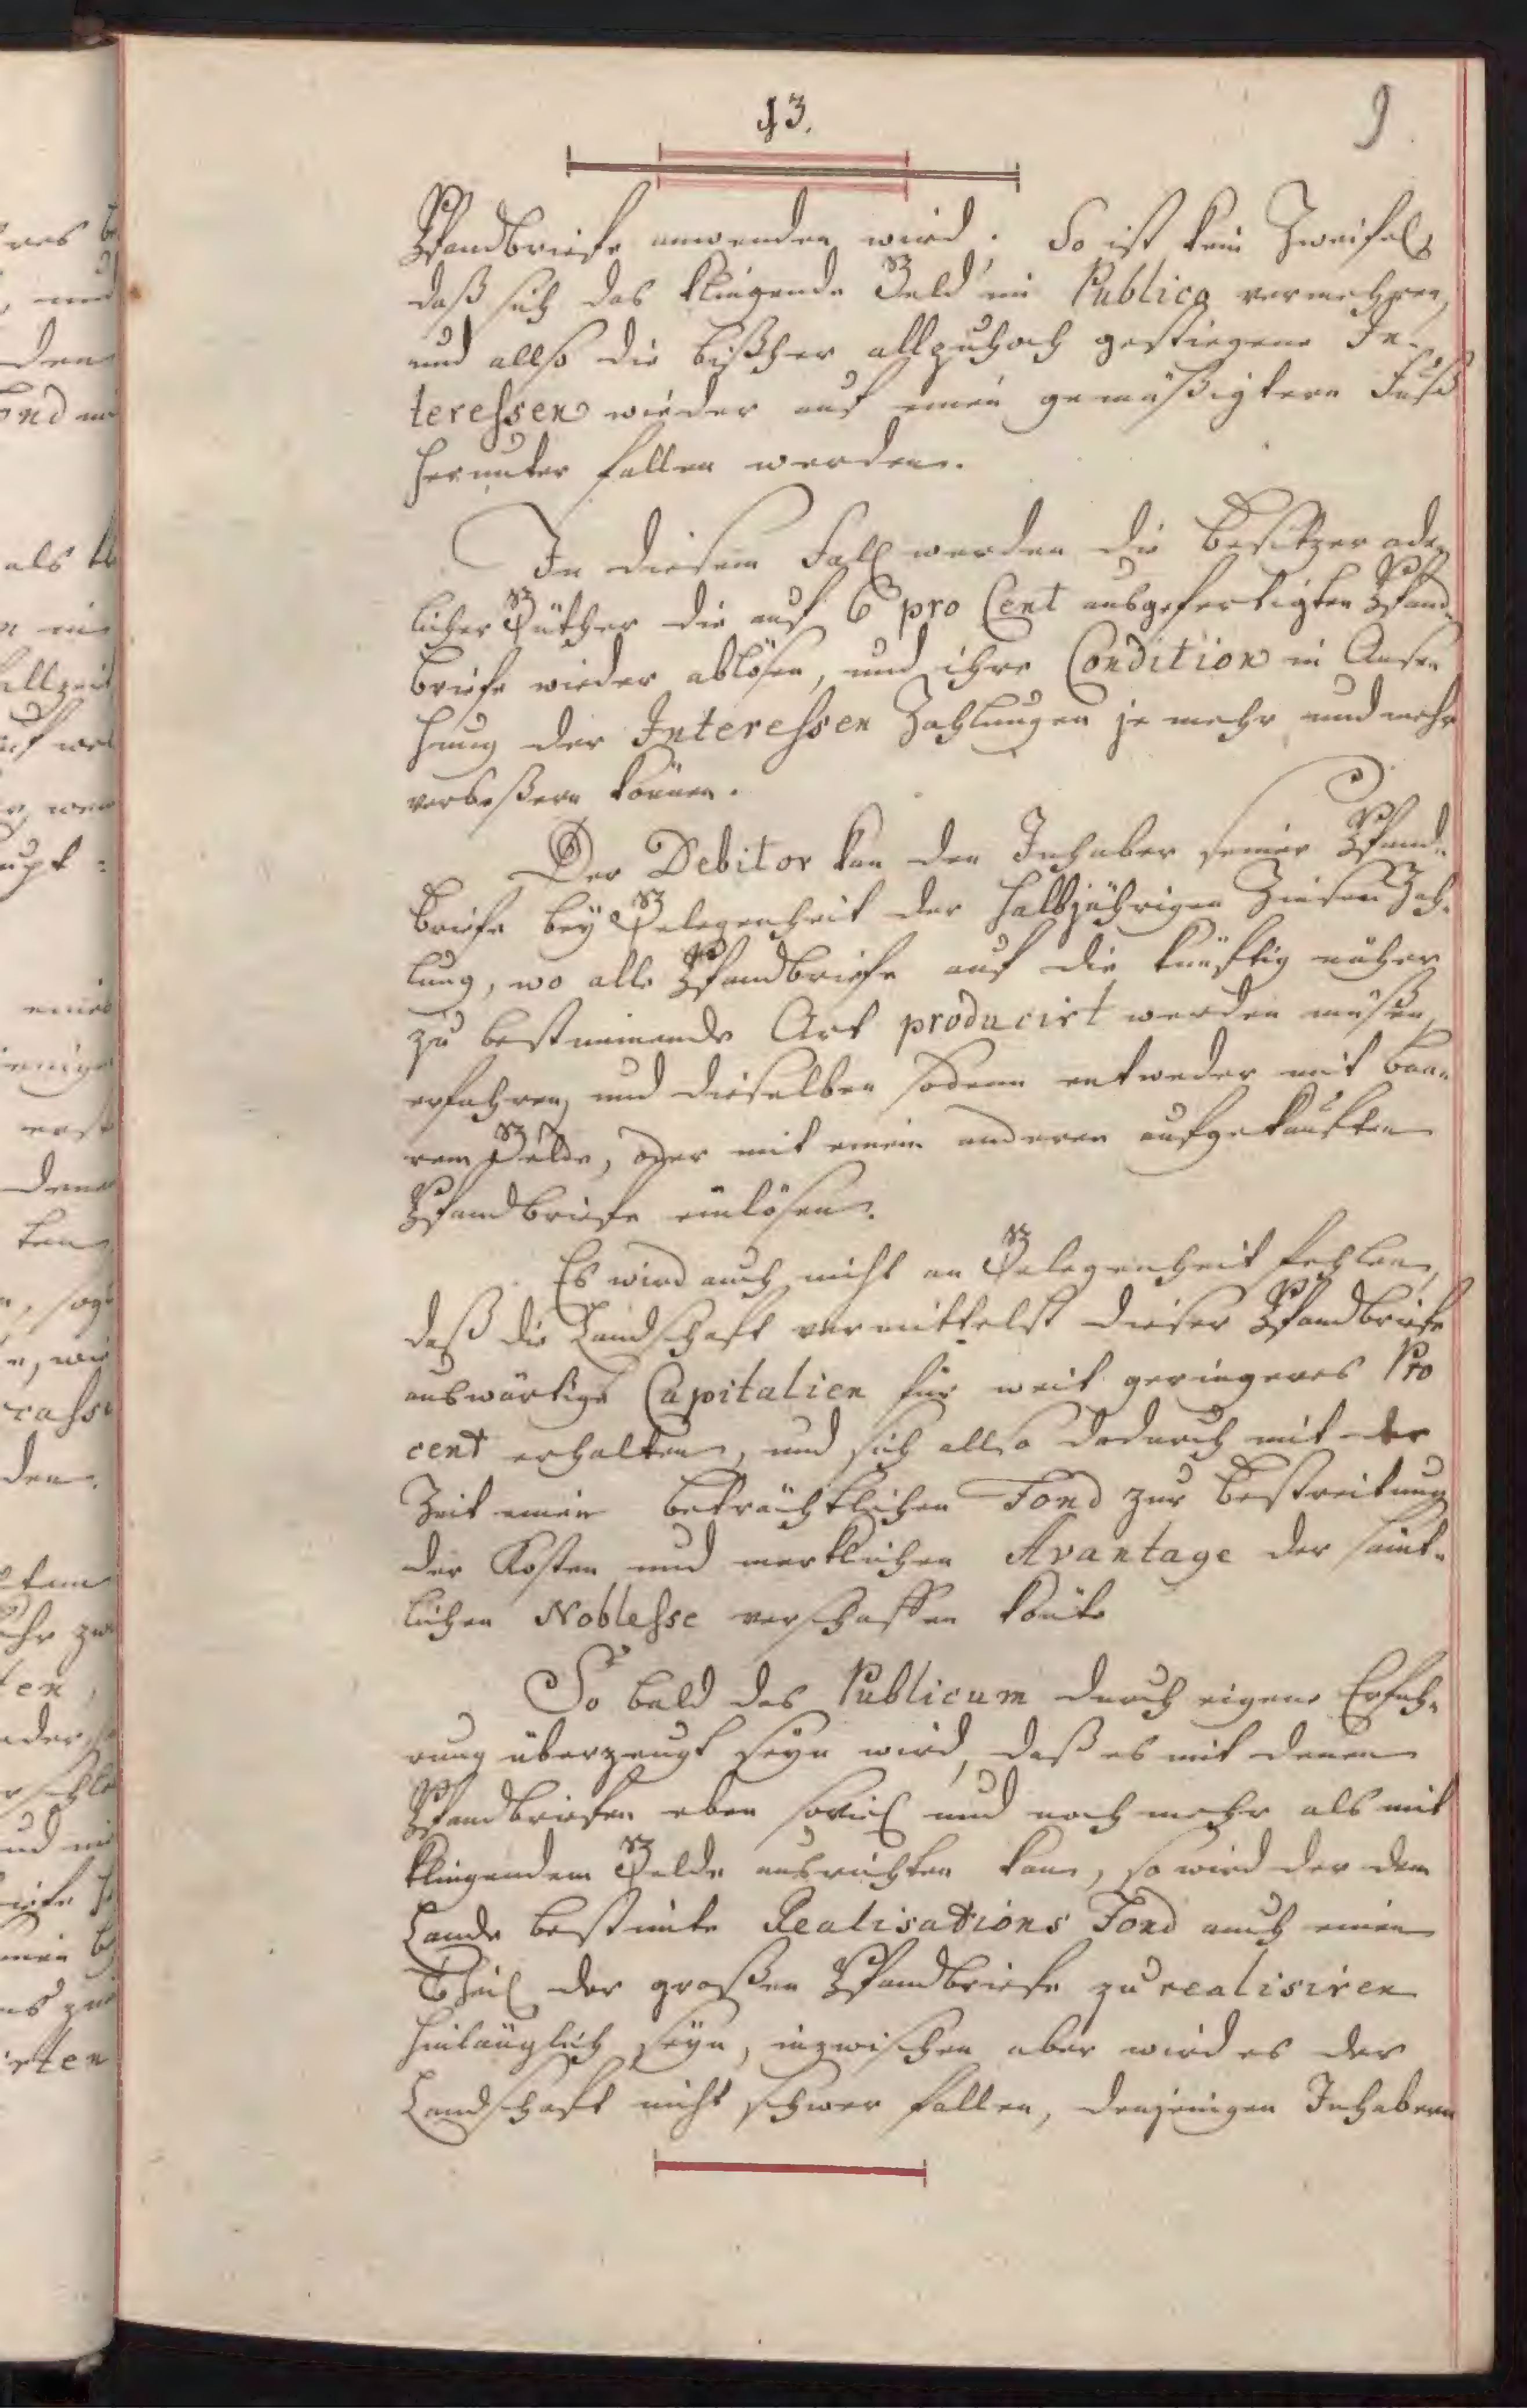 13.
9
Pfandbriefe anwenden wird. So ist kein Zweifel,
daß sich das klingende Geld im Publico vermehren,
und allso die bißher allzuhoch gestiegene In-
teressen wieder auf einen gemäßigtern Fuß
herunter fallen werden.
In diesem Fall werden die Besitzer ade-
licher Güther die auf 6 pro Cent ausgefertigten Pfand-
briefe wieder ablösen, und ihre Condition in Anse-
hung der Interessen Zahlungen je mehr und mehr
verbeßern können.
Der Debitor kan den Inhaber seiner Pfand-
briefe bey Gelegenheit der halbjährigen Zinsen Zah-
lung, wo alle Pfandbriefe auf die künftig näher
zu bestimmende Art producirt werden müßen,
erfahren, und dieselben sodann entweder mit baa-
rem Gelde, oder mit einem anderen aufgekauften
Pfandbriefe einlösen.
Es wird auch nicht an Gelegenheit fehlen,
daß die Landschaft vermittelst dieser Pfandbriefe
auswärtige Capitalien für weit geringeres Pro
cent erhalten, und sich allso dadurch mit der
Zeit einen beträchtlichen Fond zur Bestreitung
der Kosten und merklichen Avantage der sämt-
lichen Noblesse verschaffen könte
So bald das Publicum durch eigene Erfah-
rung überzeugt seyn wird, daß es mit denen
Pfandbriefen eben soviel und noch mehr als mit
klingendem Gelde ausrichten kann, so wird der dem
Lande bestimte Realisations Fond auch einen
Theil der großen Pfandbriefe zu realisiren
hinlänglich seyn, inzwischen aber wird es der
Landschaft nicht schwer fallen, denjenigen Inhabern